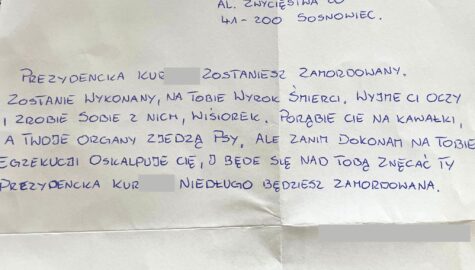 AL. ZWYCIĘSTWA 20
41-200 SOSNOWIEC.
PREZYDENCKA KUR ZOSTANIESZ ZAMORDOWANY.
ZOSTANIE WYKONANY, NA TOBIE WYROK ŚMIERCI. WYJMĘ CI OCZY
I ZROBIE SOBIE Z NICH, WISIOREK. PORĄBIE CIE NA KAWAŁKI,
A TWOJE ORGANY ZJEDZĄ PSY, ALE ZANIM DOKONAM NA TOBIE
EGZEKUCJI OSKALPUJE CIĘ, I BĘDE SIĘ NAD TOBĄ ZNĘCAĆ TY
PREZYDENCKA KUR NIEDŁUGO BĘDZIESZ ZAMORDOWANA.